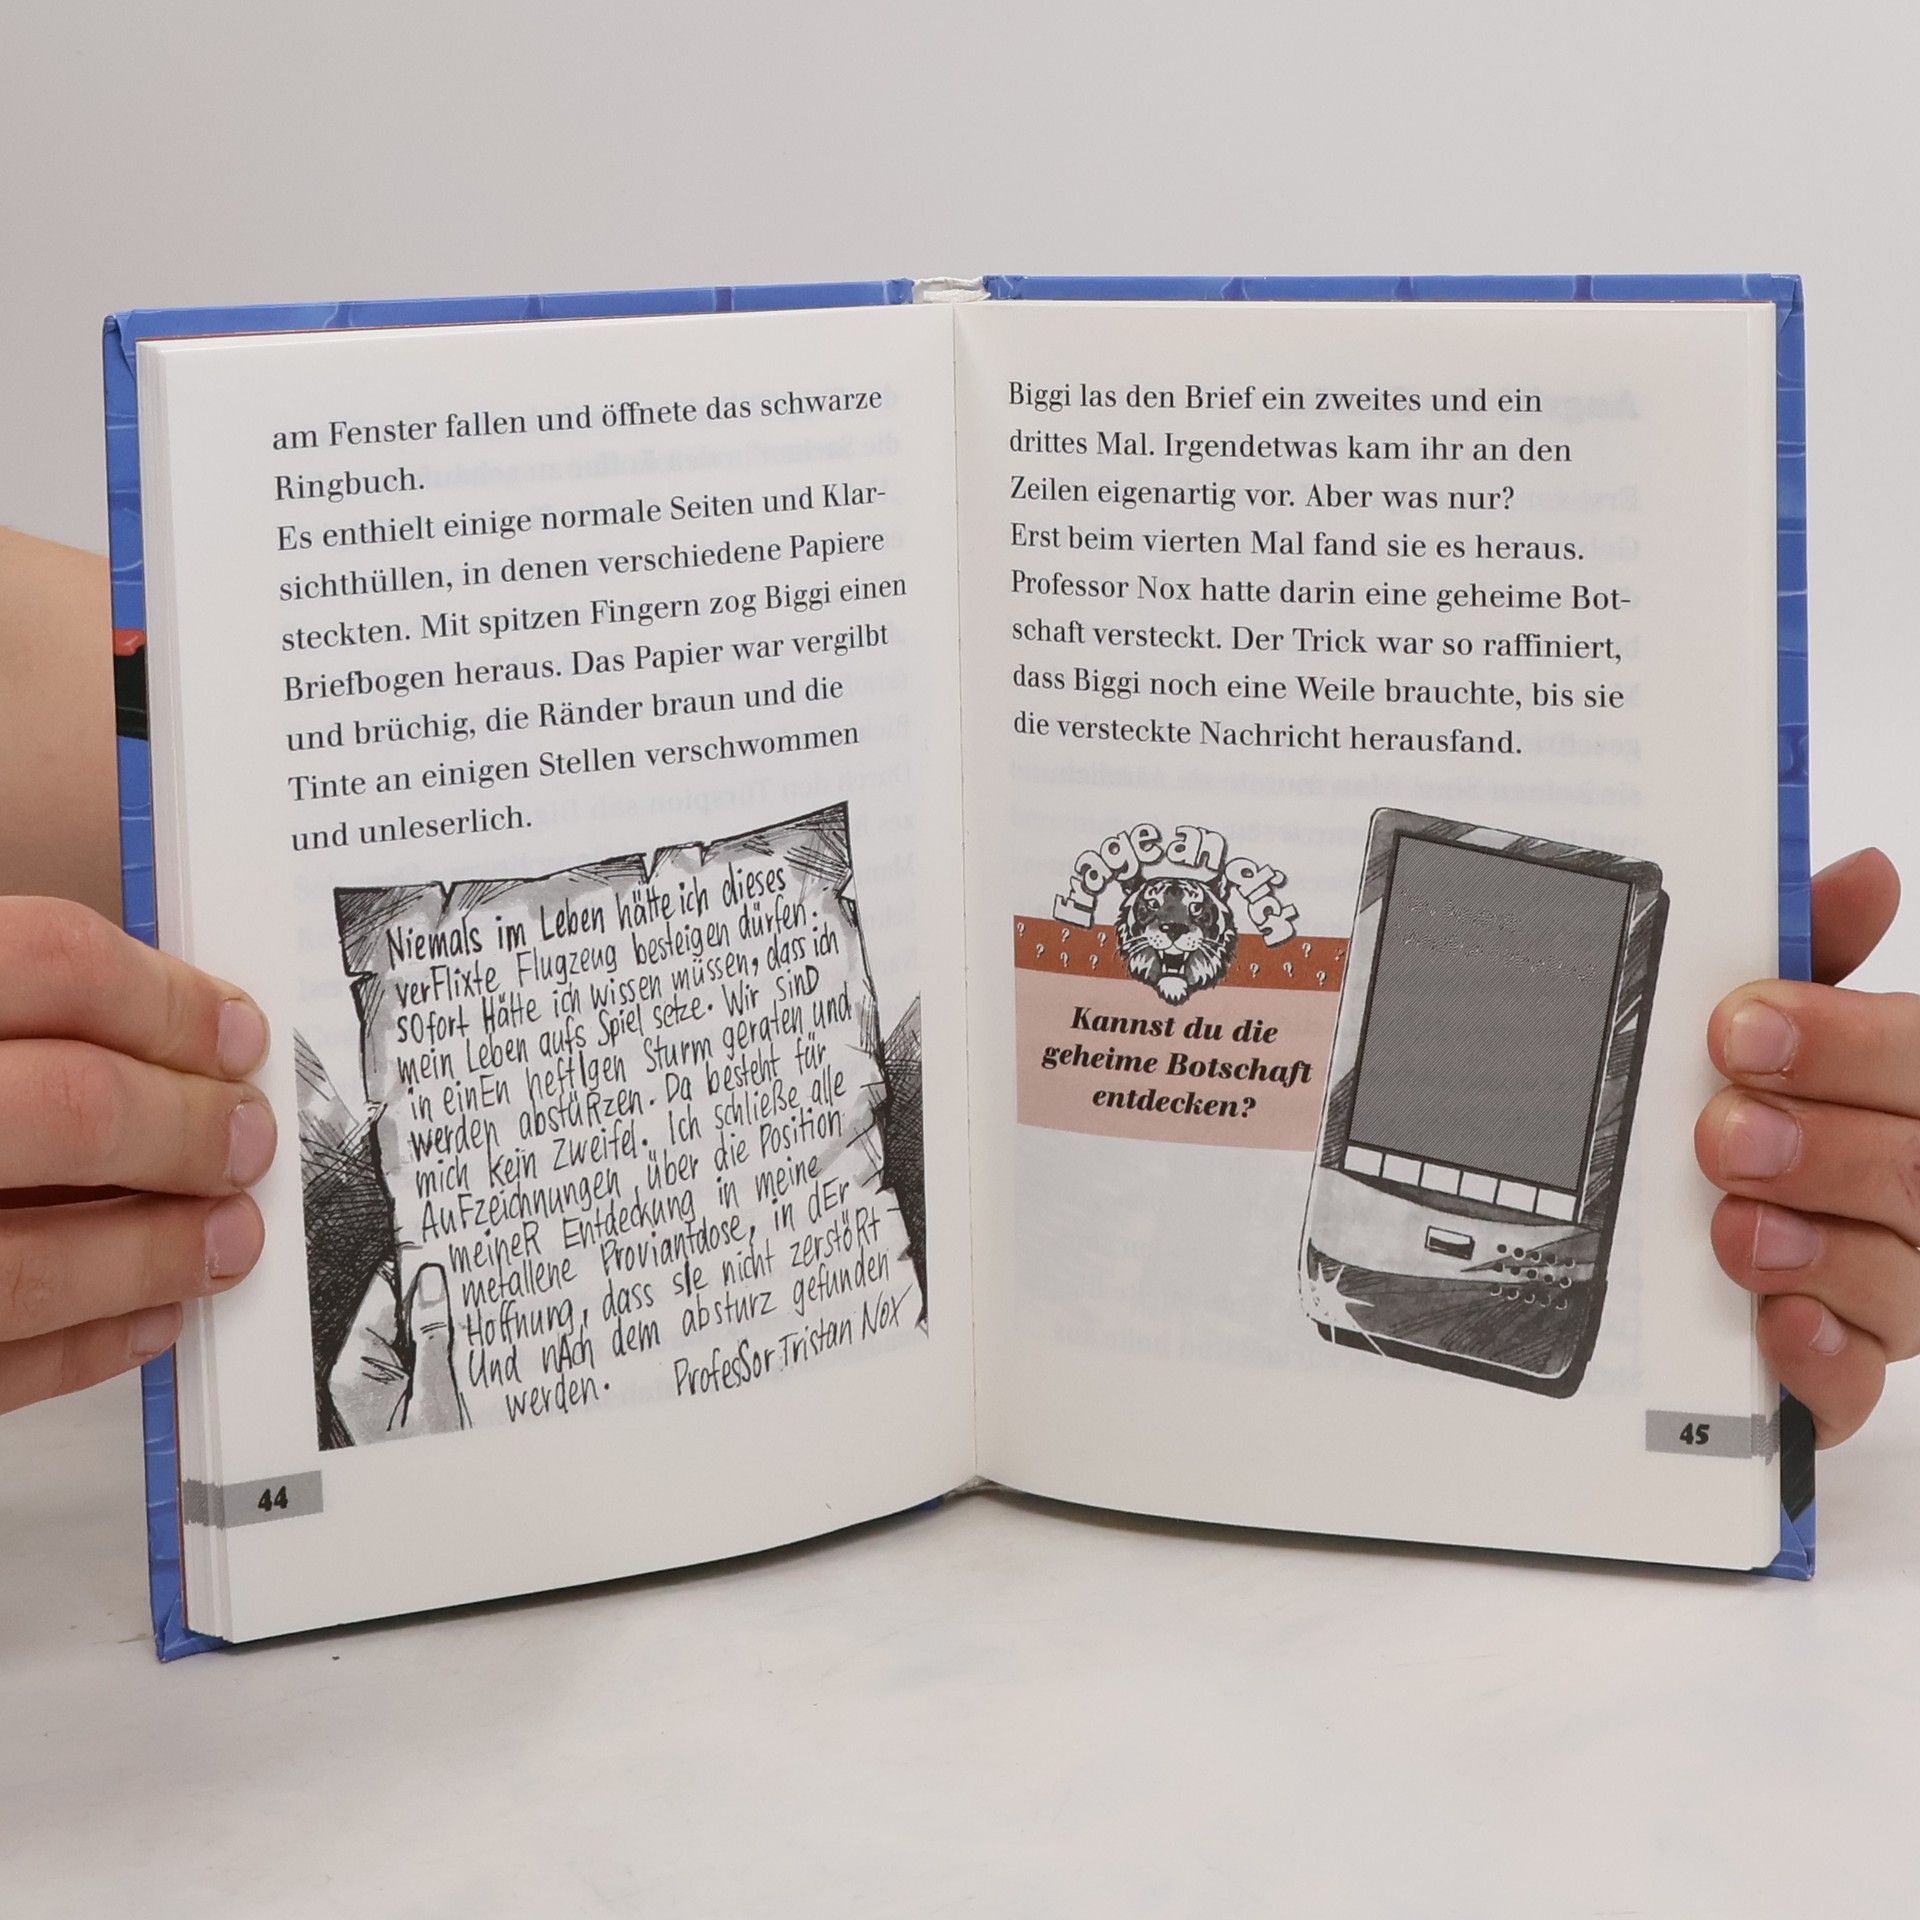 am Fenster fallen und öffnete das schwarze
Ringbuch.
Es enthielt einige normale Seiten und Klar-
sichthüllen, in denen verschiedene Papiere
steckten. Mit spitzen Fingern zog Biggi einen
Briefbogen heraus. Das Papier war vergilbt
und brüchig, die Ränder braun und die
Tinte an einigen Stellen verschwommen
und unleserlich.
Niemals im Leben hätte ich dieses
verFlixte Flugzeug besteigen dürfen.
sOfort Hätte ich wissen müssen, dass ich
mein Leben aufs Spiel setze. Wir sinD
in einEn heftIgen Sturm geraten und
werden abstüRzen. Da besteht für
mich kein Zweifel. Ich schließe alle
AuFzeichnungen über die Position
meineR Entdeckung in meine
metallene Proviantdose, in dEr
Hoffnung, dass sIe nicht zerstöRt
Und nAch dem absturz gefunden
werden. ProfesSor Tristan Nox
44
Biggi las den Brief ein zweites und ein
drittes Mal. Irgendetwas kam ihr an den
Zeilen eigenartig vor. Aber was nur?
Erst beim vierten Mal fand sie es heraus.
Professor Nox hatte darin eine geheime Bot-
schaft versteckt. Der Trick war so raffiniert,
dass Biggi noch eine Weile brauchte, bis sie
die versteckte Nachricht herausfand.
Frage an dich
Kannst du die
geheime Botschaft
entdecken?
45